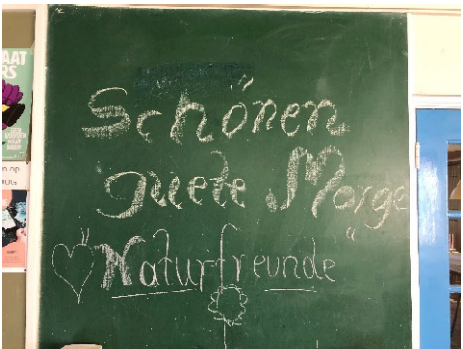 Schönen
Guete Morge
"Naturfreunde"
AAT
RS